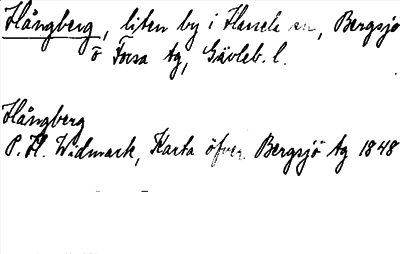 Hångberg, liten by i Hassela sn, Bergsjö
o Forsa tg, Gävleb. l.
Hångberg
P. H. Widmark, Karta öfver Bergsjö tg 1848